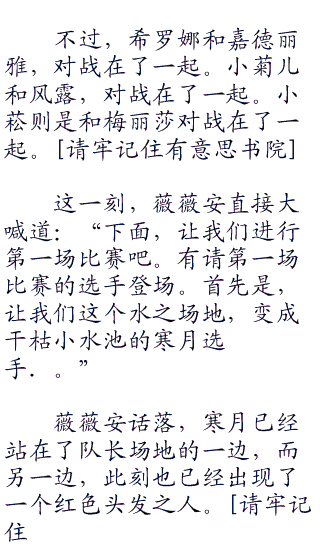 不过，希罗娜和嘉德丽
雅，对战在了一起。小菊儿
和风露，对战在了一起。小
菘则是和梅丽莎对战在了一
起。[请牢记住有意思书院]
这一刻，薇薇安直接大
喊道：“下面，让我们进行
第一场比赛吧。有请第一场
比赛的选手登场。首先是，
让我们这个水之场地，变成
干枯小水池的寒月选
手．。”
薇薇安话落，寒月已经
站在了队长场地的一边，而
另一边，此刻也已经出现了
一个红色头发之人。[请牢记
住